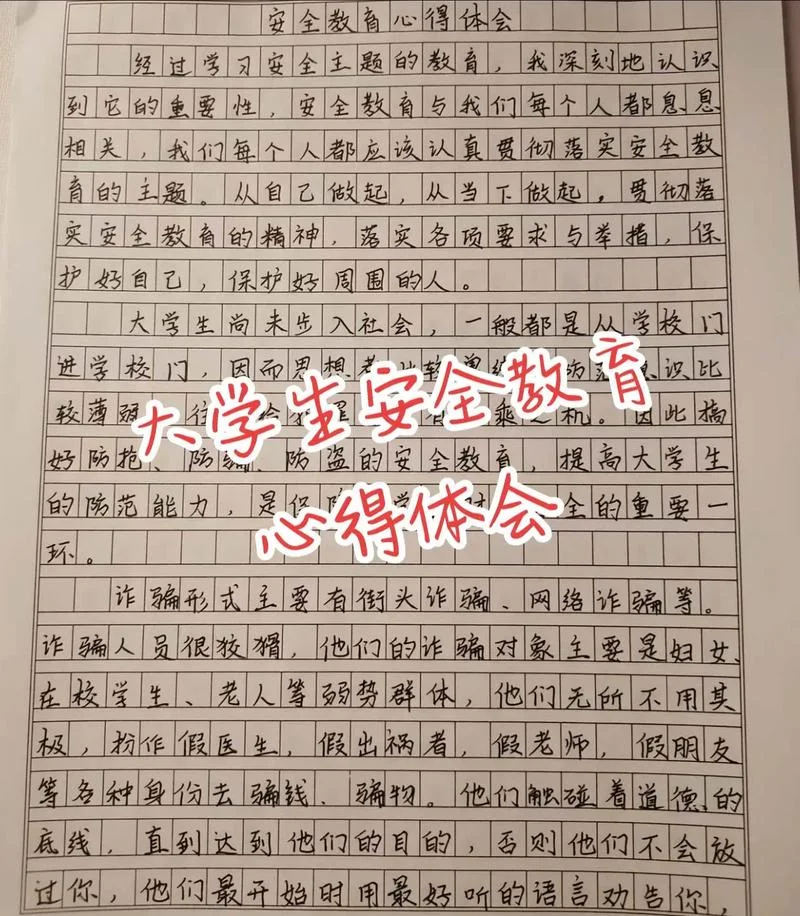 安全教育心得体会
经过学习安全主题的教育，我深刻地认识
到它的重要性，安全教育与我们每个人都息息
相关，我们每个人都应该认真贯彻落实安全教
育的主题。从自己做起，从当下做起，贯彻落
实安全教育的精神，落实各项要求与举措，保
护好自己，保护好周围的人。
大学生尚未步入社会，一般都是从学校门
进学校门，因而思想 比较 防范 识比
较薄弱 往 给 乘 之机。因此搞
好防抢、防骗、防盗的安全教育，提高大学生
的防范能力，是保 学 全的重要一
环。
大学生安全教育
心得体会
诈骗形式主要有街头诈骗、网络诈骗等。
诈骗人员很狡猾，他们的诈骗对象主要是妇女、
在校学生、老人等弱势群体，他们无所不用其
极，扮作假医生，假出祸者，假老师，假朋友
等各种身份去骗钱、骗物。他们触碰着道德的
底线，直到达到他们的目的，否则他们不会放
过你，他们最开始时用最好听的语言劝告你，